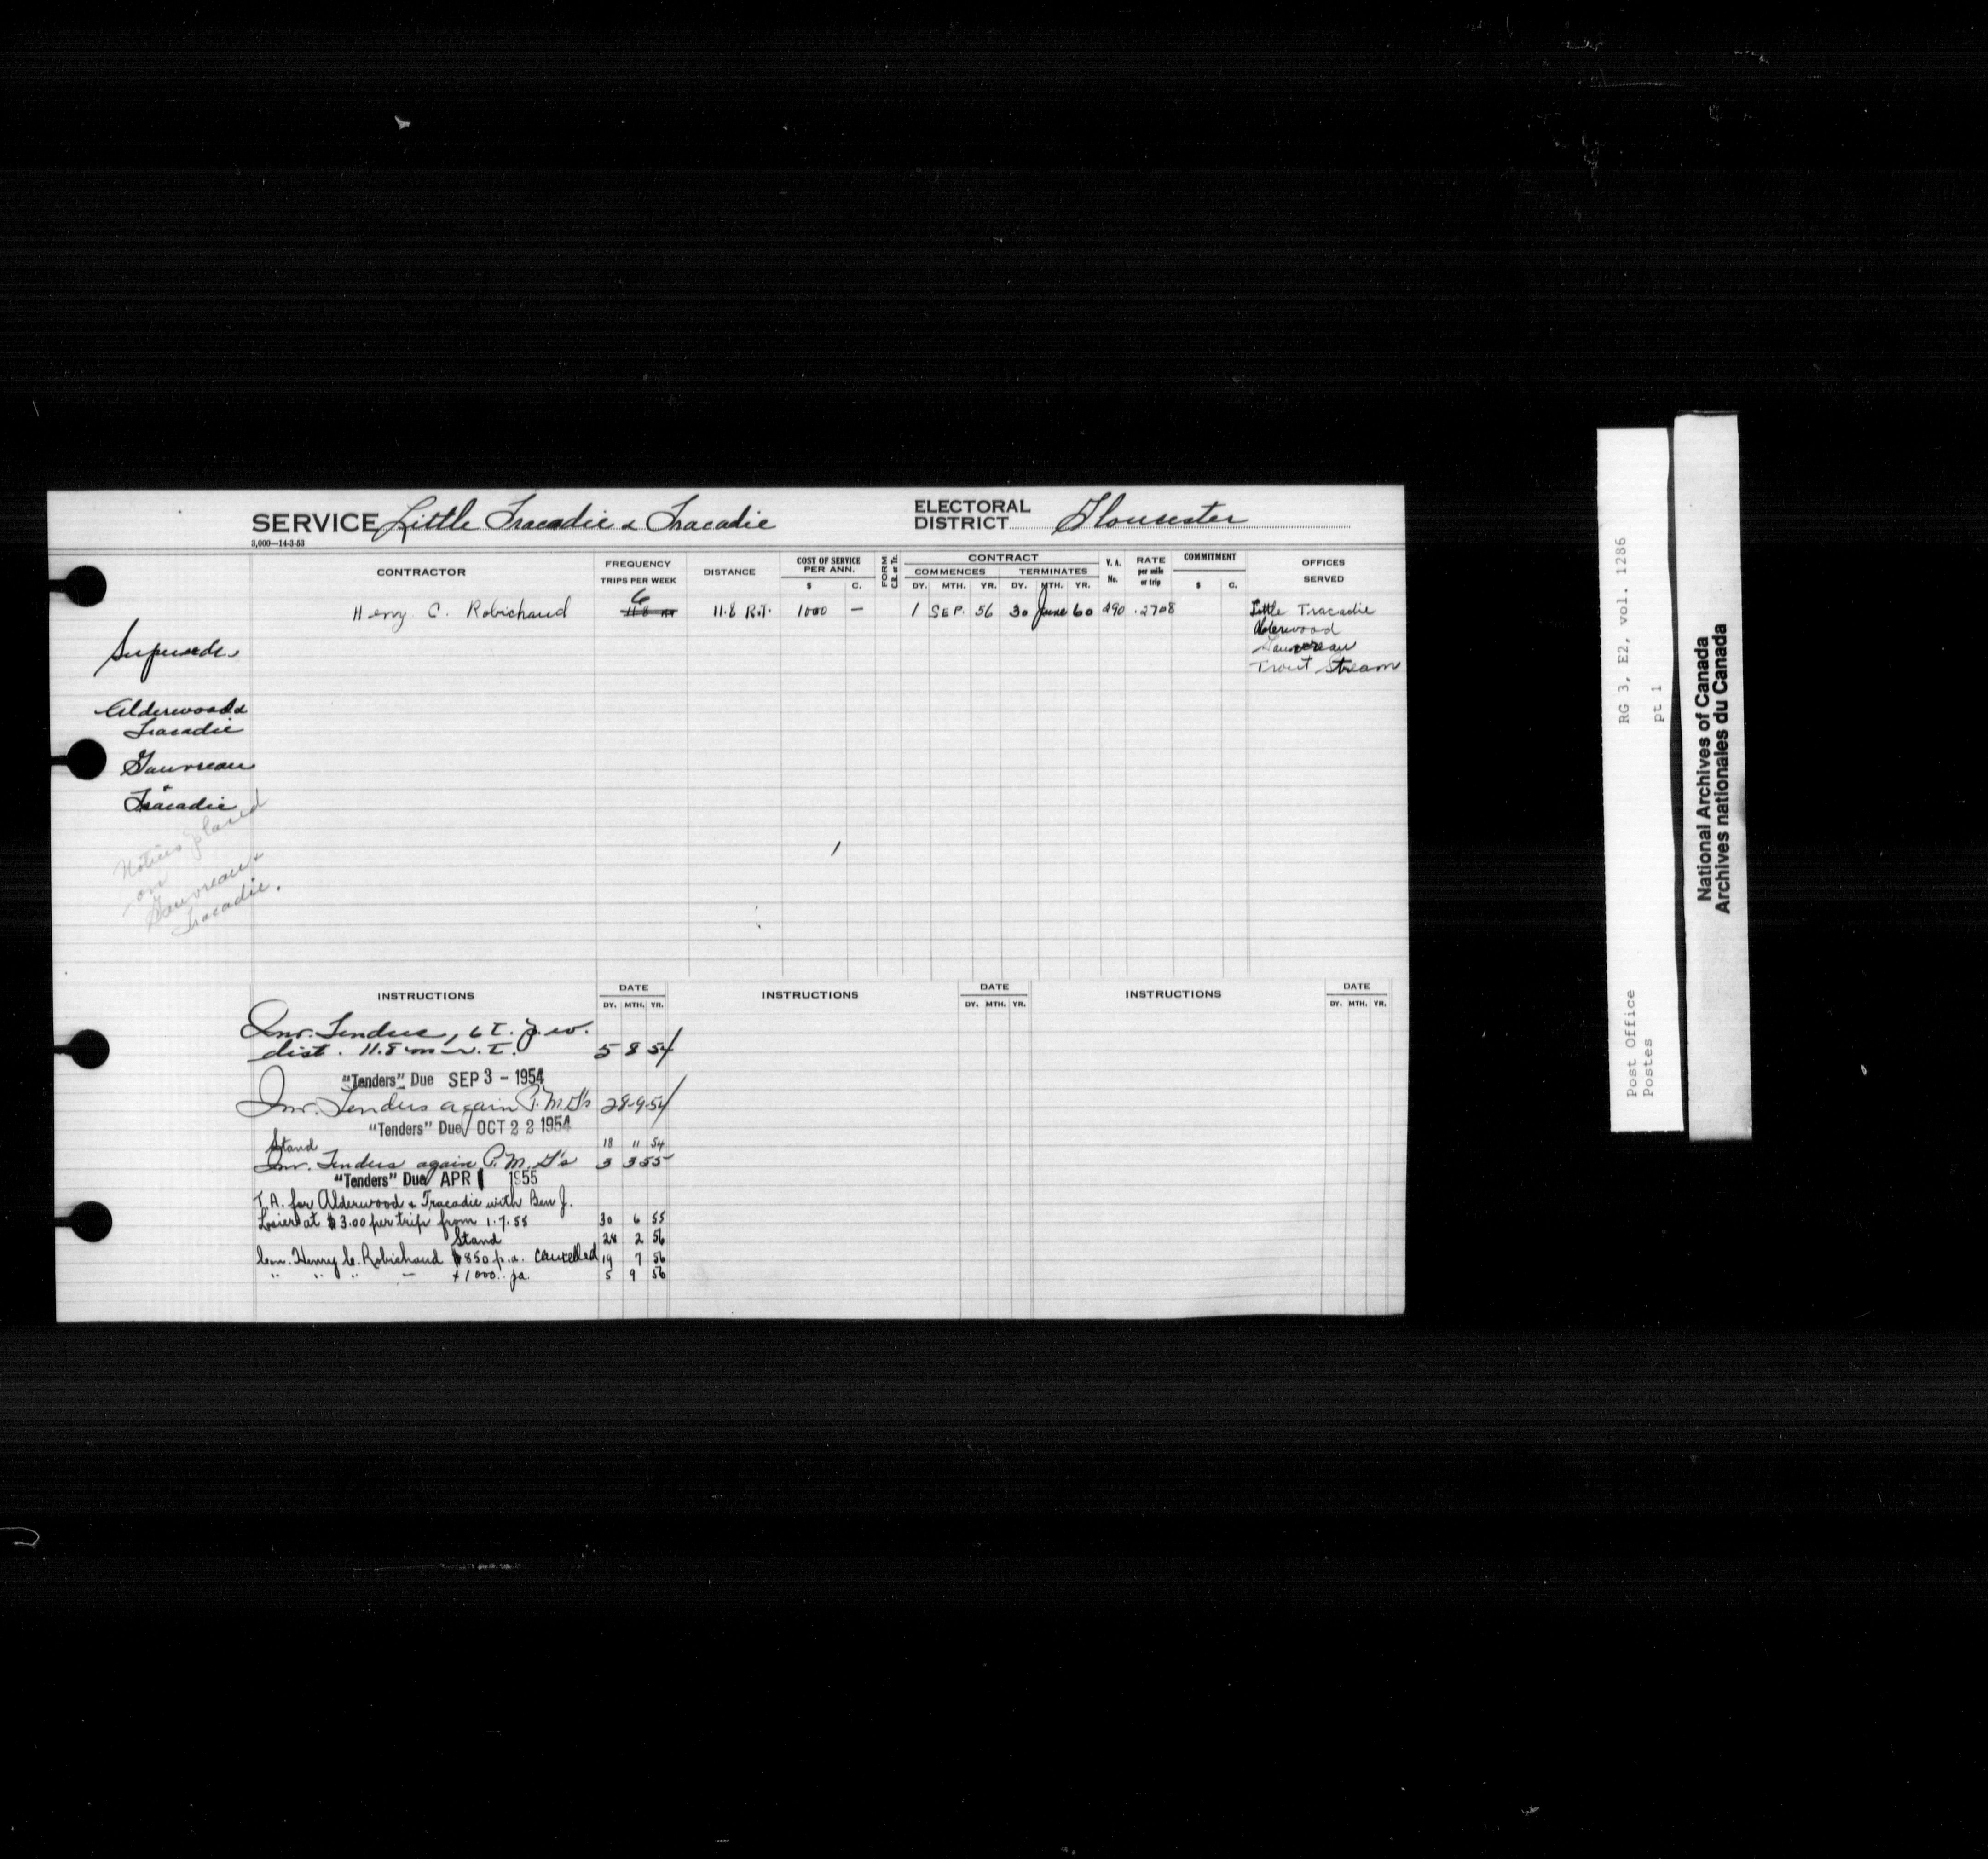 SERVICE Little Tracadie & Tracadie
ELECTORAL DISTRICT Gloucester
3,000—14-3-53
CONTRACTOR
FREQUENCY
TRIPS PER WEEK
DISTANCE
COST OF SERVICE
PER ANN.
$ C.
FORM
C.R. or Th.
CONTRACT
COMMENCES TERMINATES
DY. MTH. YR. DY. MTH. YR.
V. A.
No.
RATE
per mile
or trip
COMMITMENT
$ C.
OFFICES
SERVED
Henry C. Robichaud 6 11.8 R.T. 1000 — 1 SEP. 56 30 June 60 290 .2708 Little Tracadie
Alderwood
Gauvreau
Trout Stream
Supersedes
Alderwood &
Tracadie
Gauvreau
&
Tracadie
Notices placed
on
Gauvreau &
Tracadie.
INSTRUCTIONS
DATE
DY. MTH. YR.
INSTRUCTIONS
DATE
DY. MTH. YR.
INSTRUCTIONS
DATE
DY. MTH. YR.
Inv. Tenders, 6 t. p. w.
dist. 11.8 m r. t. 5 8 54
"Tenders" Due SEP 3 - 1954
Inv. Tenders again P.M.G's 28-9-54
"Tenders" Due OCT 22 1954
Stand 18 11 54
Inv. Tenders again P.M.G's 3 3 55
"Tenders" Due APR 1 1955
T.A. for Alderwood & Tracadie with Ben J.
Losier at $3.00 per trip from 1.7.55 30 6 55
Stand 24 2 56
Henry C. Robichaud $850 p.a. cancelled 19 7 56
" " " — 1000. pa. 5 9 56
RG 3, E2, vol. 1286
pt 1
Post Office
Postes
National Archives of Canada
Archives nationales du Canada